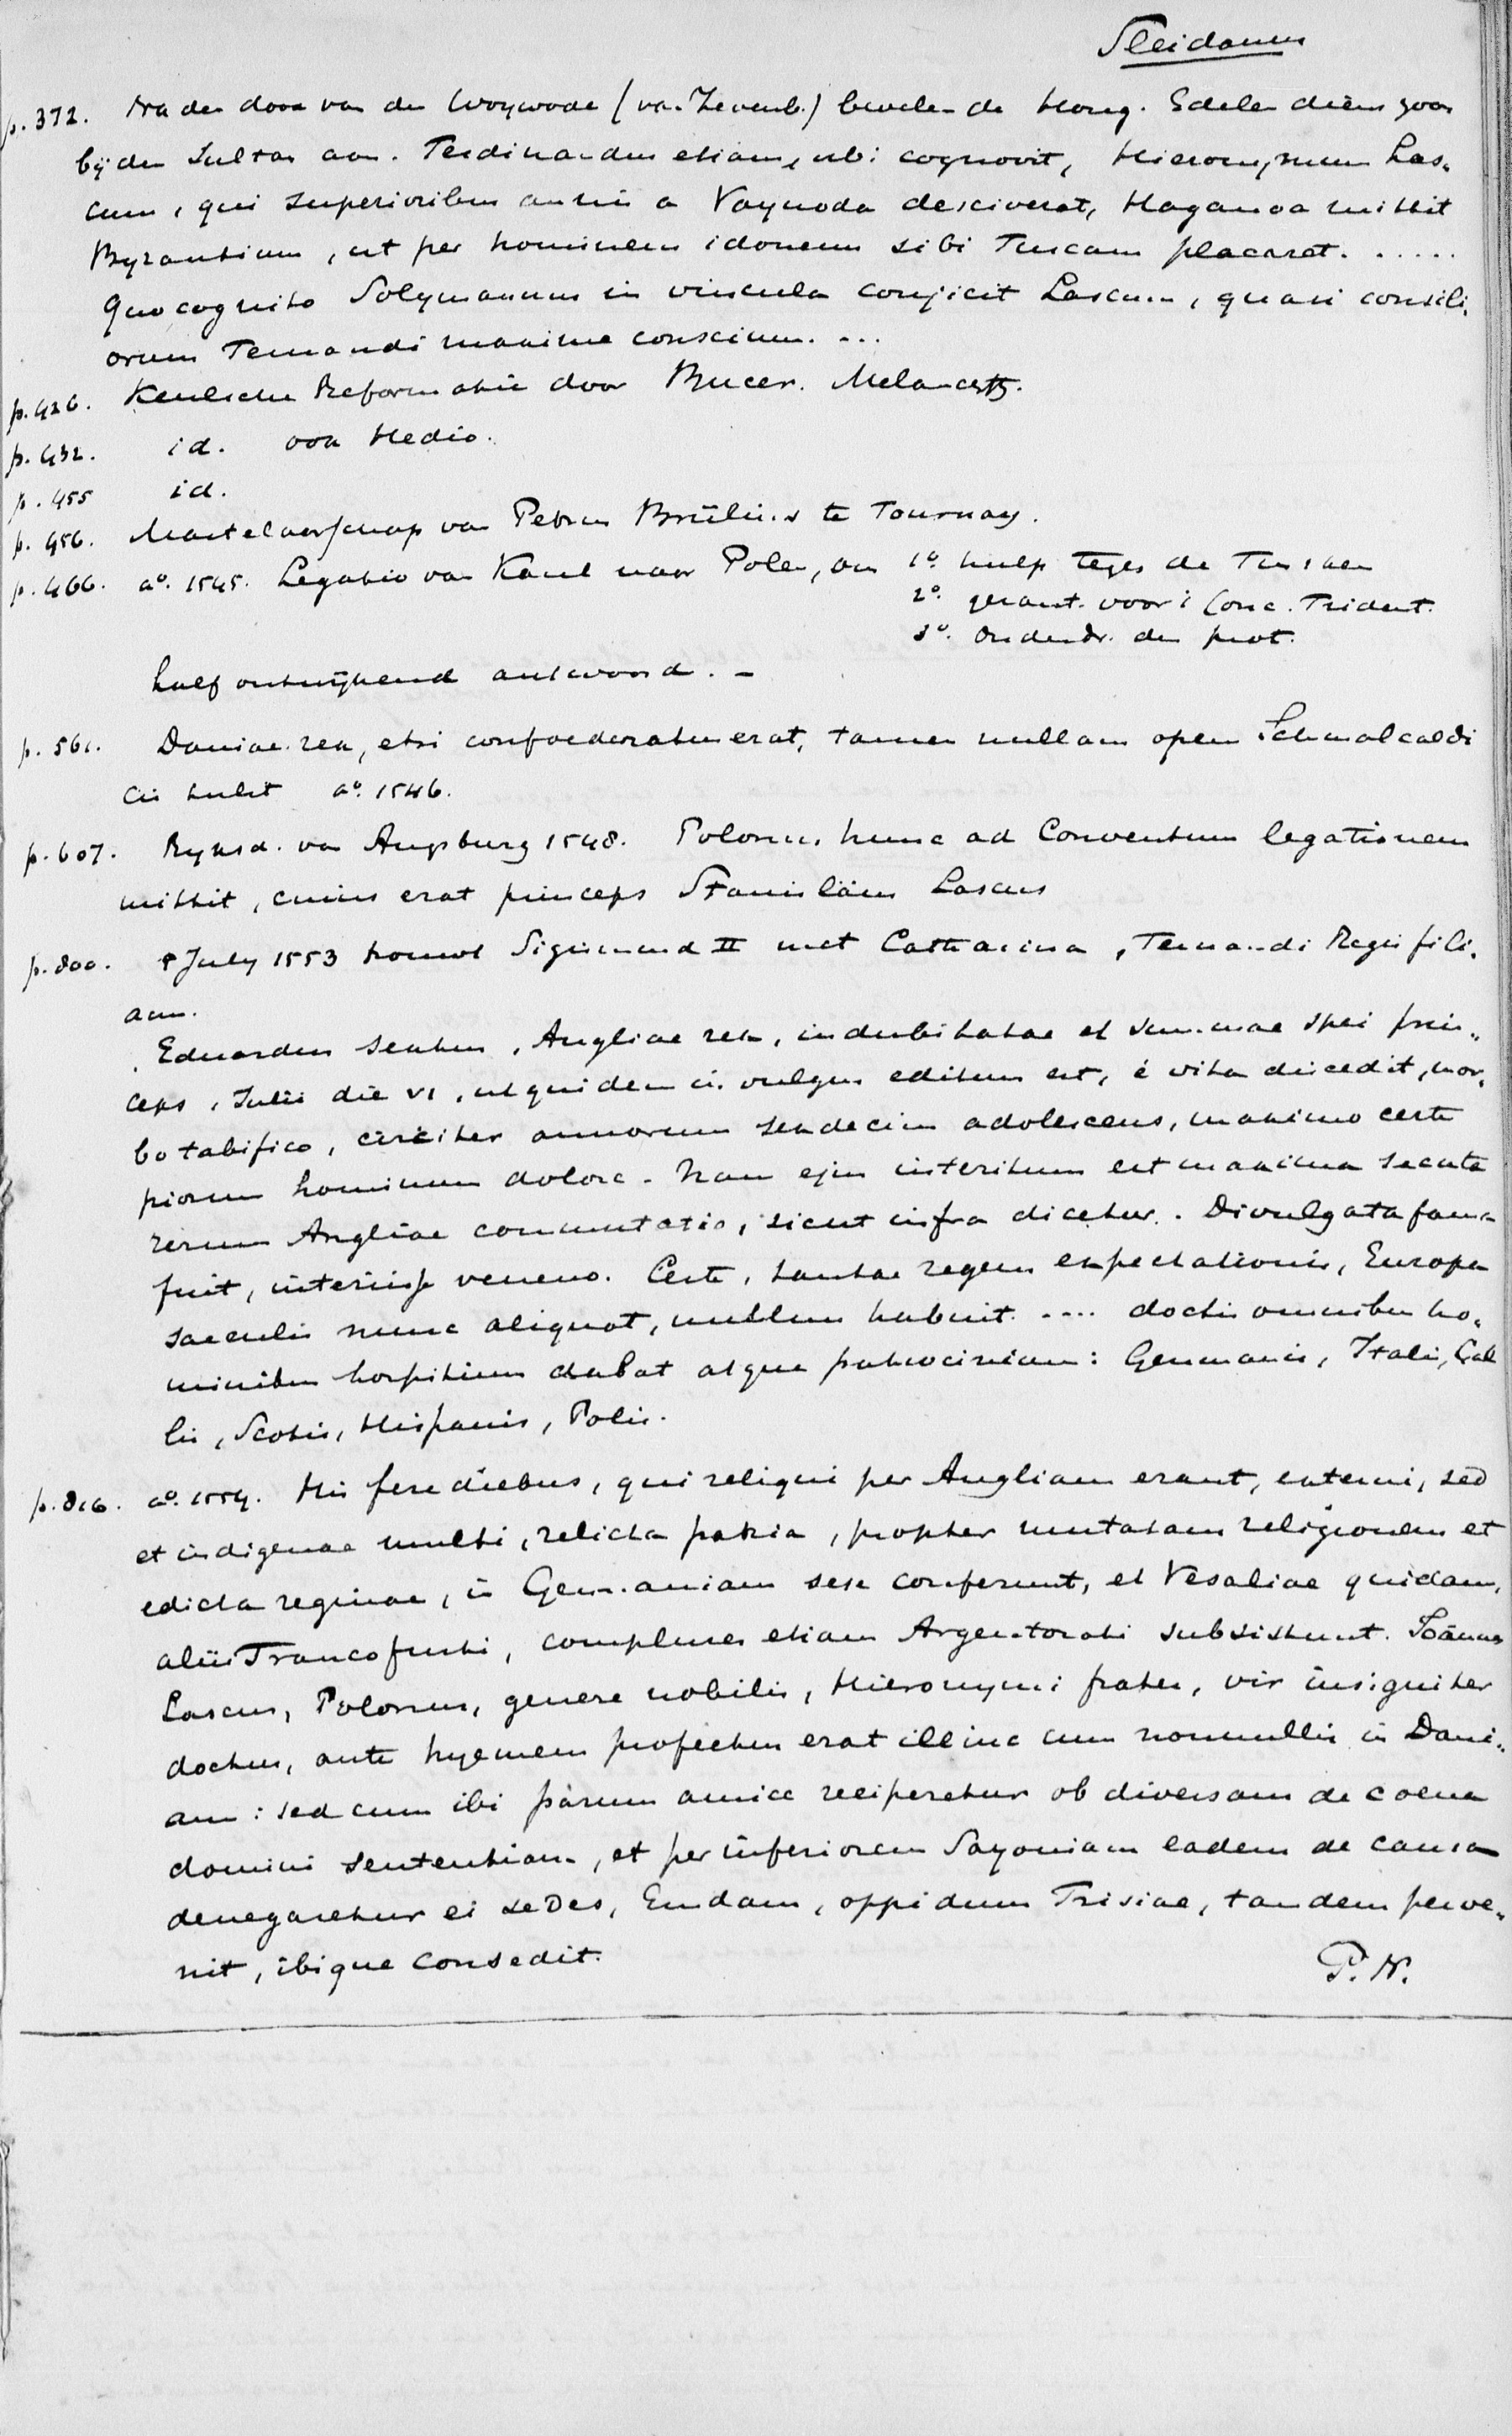 Sleidanus
p. 372. Na den dood van den Woywode (van Zevenb.) bevelen de Hong. Edelen diens zoon
bij den Sultan aan. Ferdinandus etiam, ubi cognovit, Hieronymum Las-
cum, qui superioribus annis a Vayvoda desciverat, Haganoa mittit
Byzantium, ut per hominem idoneum sibi Turcam placaret. .....
Quo cognito Solymannus in vincula conjicit Lascum, quasi consili-
orum Fernandi maxime conscium. ...
p. 426. Keulsche Reformatie door Bucer. Melancth.
p. 432. id. van Hedio.
p. 455 id.
p. 456. Martelaarschap van Petrus Brülius te Tournay.
p. 466. ao. 1545. Legatio van Karel naar Polen, om 1o. hulp tegen de Turken
2o. voor 't Conc. Trident.
3o. Onderdr. der prot.
half ontwijkend antwoord. -
p. 561. Daniae rex, etsi confoederatus erat, tamen nullam opem Schmalcaldi
cis tulit ao. 1546.
p. 607. Ryksd. van Augsburg 1548. Polonus hunc ad Conventum legationem
mittit, cuius erat princeps Stanisläus Lascus
p. 800. 8 July 1553 trouwt Sigismund II met Catharina, Fernandi Regis fili-
am.
Eduardus sextus, Angliae rex, indubitatae et summae spei prin-
ceps, Julii die VI, ut quidem in vulgus editum est, è vita discedit, mor-
bo tabifico, circiter annorum sexdecim adolescens, maximo certe
piorum hominum dolore. Nam ejus interitum est maxima secuta
rerum Angliae commutatio, sicut infra dicetur. Divulgata fama
fuit, interiisse veneno. Certe, tantae regem expectationis, Europa
saeculis nunc aliquot, nullum habuit. .... doctis omnibus ho-
minibus hospitium dabat atque patrocinium: Germanis, Italis, Gal
lis, Scotis, Hispanis, Polis.
p. 816. ao. 1554. His fere diebus, qui reliqui per Angliam erant, externi, sed
et indigenae multi, relicta patria, propter mutatam religionem et
edicta reginae, in Germaniam sese conferunt, et Vesaliae quidam,
alii Francofurti, complures etiam Argentorati subsistunt. Joännes
Lascus, Polonus, genere nobilis, Hieronymi frater, vir insigniter
doctus, ante hyemem profectus erat illinc cum nonnullis in Dani-
am: sed cum ibi parum amice reciperetur ob diversam de coena
domini sententiam, et per inferiorem Saxoniam eadem de causa
denegaretur ei sedes, Emdam, oppidum Frisiae, tandem perve-
nit, ibique consedit.
P. N.